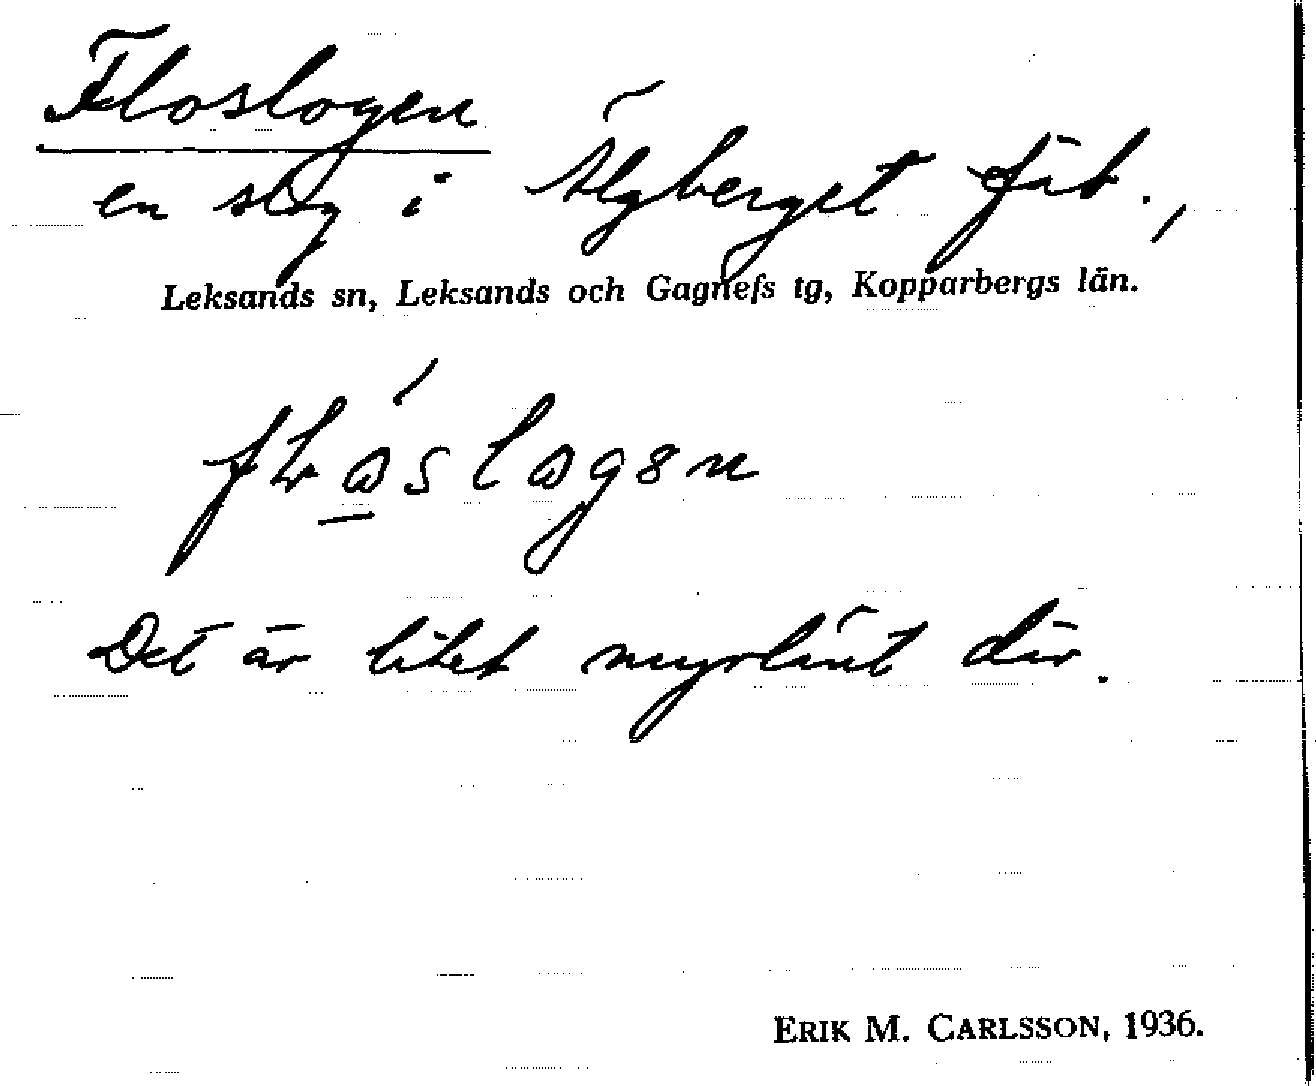 Floslogen
en slog i Älgberget fäb.,
Leksands sn, Leksands och Gagnefs tg, Kopparbergs län.
Det är litet myrlänt där.
ERIK M. CARLSSON, 1936.